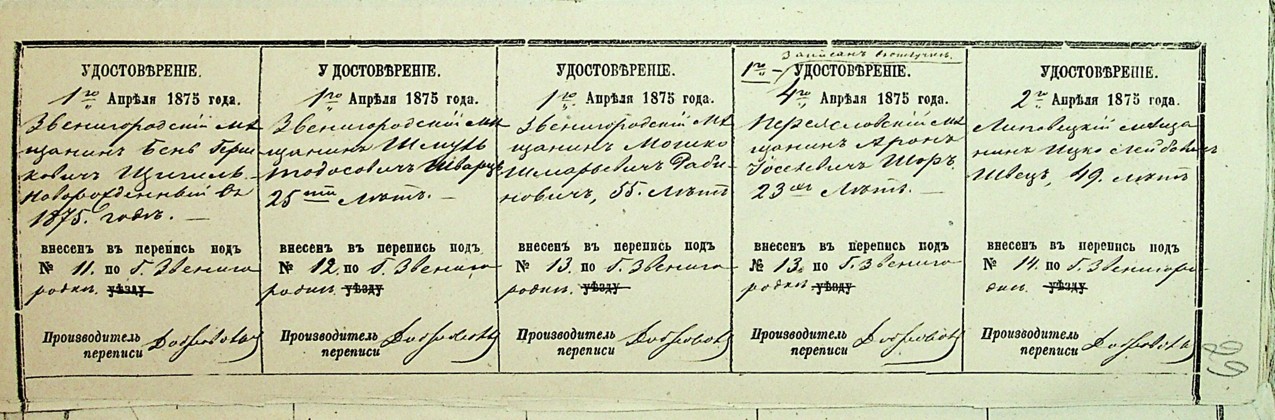 УДОСТОВѢРЕНІЕ.
1го Апрѣля 1875 года.
Звенигородскій мѣ
щанинъ Бень Герш
ковичъ Щигель.
Новорожденный въ
1875. годѣ. —
внесенъ въ перепись подъ
№ 11. по Г. Звениго
родкѣ. уѣзду
Производитель
переписи
УДОСТОВѢРЕНІЕ.
1го Апрѣля 1875 года.
Звенигородскій мѣ
щанинъ Шмуль
Тодосовичъ Шварцъ
25ти лѣтъ. —
внесенъ въ перепись подъ
№ 12. по Г. Звениго
родкѣ. уѣзду
Производитель
переписи
УДОСТОВѢРЕНІЕ.
1го Апрѣля 1875 года.
Звенигородскій мѣ
щанинъ Мошко
Шмарьевичъ Раби
новичъ, 55. лѣтъ
внесенъ въ перепись подъ
№ 13. по Г. Звениго
родкѣ. уѣзду
Производитель
переписи
Записанъ
1го — УДОСТОВѢРЕНІЕ.
4го Апрѣля 1875 года.
Переяславскій мѣ
щанинъ Аронъ
Іосевичъ Шоръ.
23хъ лѣтъ. —
внесенъ въ перепись подъ
№ 13. по Г. Звениго
родкѣ уѣзду
Производитель
переписи
УДОСТОВѢРЕНІЕ.
2го Апрѣля 1875 года.
Липовецкій мѣща
нинъ Ицко
Швецъ, 49. лѣтъ
внесенъ въ перепись подъ
№ 14. по Г. Звенигоро
дкѣ. уѣзду
Производитель
переписи